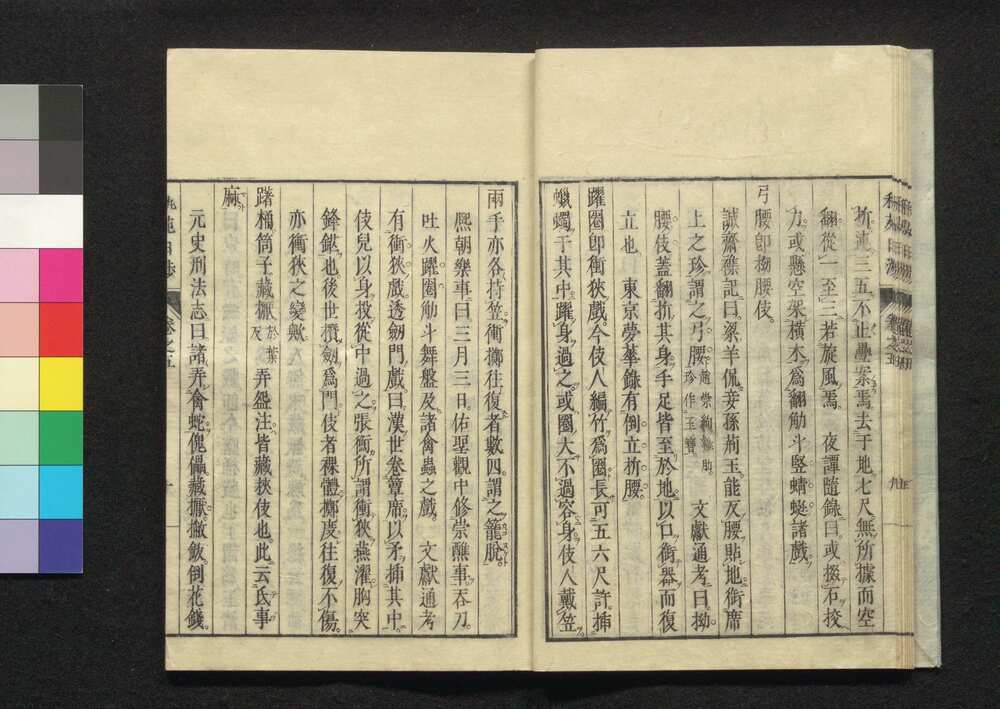 折連三五不止疊案焉去于地七尺無所據而空
翻從一至三若旋風焉。 夜譚隨錄曰或掇石挍
力或懸空架橫木爲翻觔斗竪蜻蜓諸戲
弓腰卽拗腰伎。
誠齋襍記曰梁羊侃妾孫荊玉能反腰貼地銜席
上之珍謂之弓腰 珍作玉簪 文獻通考曰拗
腰伎蓋翻折其身手足皆至於地以口銜器而復
立也 東京夢華錄有倒立折腰
躍圈卽衝狹戲今伎人編竹爲圈長可五六尺許揷
蠟燭于其中躍身過之或圈大不過容身伎人戴笠
兩手亦各持笠衝擲往復者數四謂之籠脫
熙朝樂事曰三月三日佑聖觀中修崇醮事吞刀
吐火躍圈觔斗舞盤及諸禽蟲之戲 文獻通考
有衝狹戲透劔門戲曰漢世卷簟席以矛揷其中
伎兒以身投從中過之張衡所謂衝狹燕濯胸突
鋒鋩也後世攢劔爲門伎者裸體擲度往復不傷
亦衝狹之變歟
躇桶筒子藏擫 於葉反 弄盌注皆藏挾伎也此云氐事
麻
元史刑法志曰諸弄禽蛇傀儡藏擫撇鈸倒花錢
卷之五